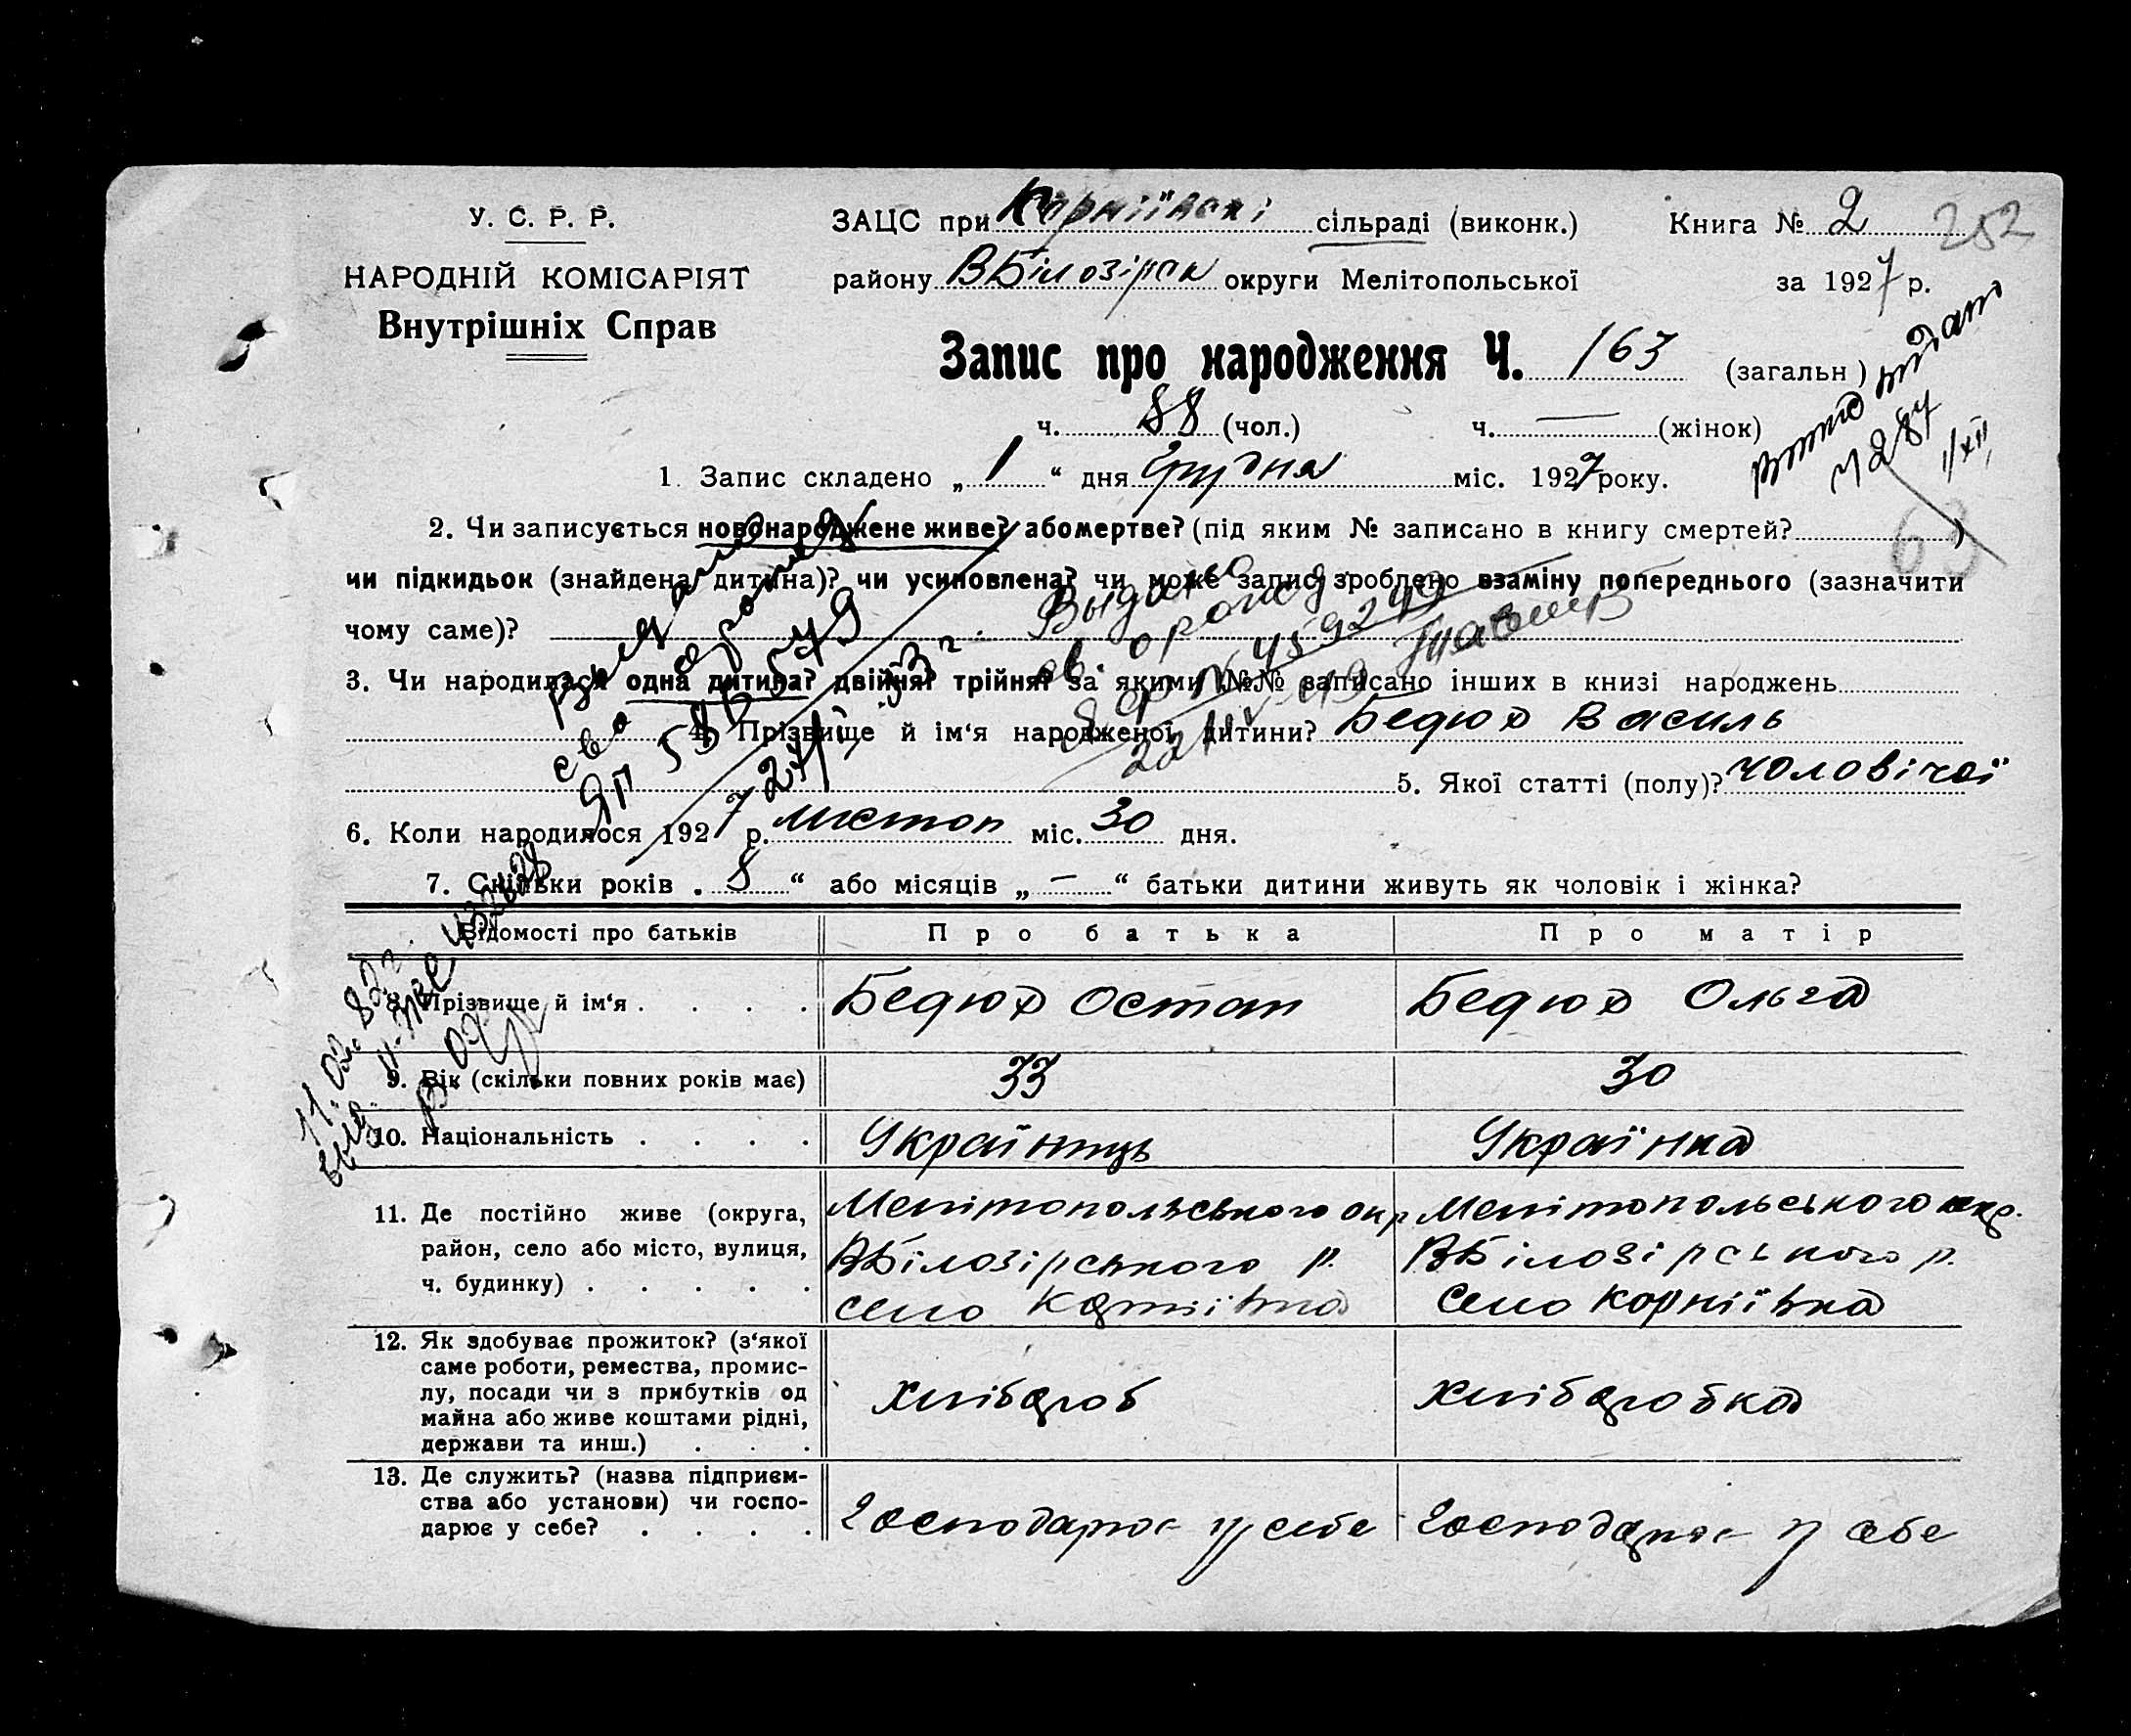 У. С. Р. Р.
НАРОДНІЙ КОМІСАРІЯТ
Внутрішніх Справ
ЗАЦС при Корніївскі сільраді (виконк.)
Книга № 2
252
району ВБілозірск округи Мелітопольської
за 1927 р.
Запис про народження Ч. 163 (загальн)
ч. 88 (чол.) ч. — (жінок)
1. Запис складено „ 1 “ дня Грудня міс. 1927 року.
2. Чи записується новонароджене живе? або мертве? (під яким № записано в книгу смертей? )
63
чи підкидьок (знайдена дитина)? чи усиновлена? чи може запис зроблено взаміну попереднього (зазначити
чому саме)?
Выдано
3. Чи народилася одна дитина? двійня? трійня? за якими №№ записано інших в книзі народжень
4. Прізвище й ім‘я народженої дитини? Бедюх Василь
5. Якої статті (полу)? чоловічої
6. Коли народилося 1927 р. листоп міс. 30 дня.
7. Скільки років „ 8 “ або місяців „ — “ батьки дитини живуть як чоловік і жінка?
Відомості про батьків Про батька Про матір
8. Прізвище й ім‘я . . . . Бедюх Остап Бедюх Ольга
9. Вік (скільки повних років має) 33 30
10. Національність . . . . Українець Українка
11. Де постійно живе (округа, Мелітопольського окр Мелітопольського окр.
район, село або місто, вулиця, ВБілозірського р. ВБілозірського р.
ч. будинку) . . . . . село Корніївка село Корніївка
12. Як здобуває прожиток? (з‘якої
саме роботи, ремества, промис-
лу, посади чи з прибутків од хлібороб хліборобка
майна або живе коштами рідні,
держави та инш.) . . .
13. Де служить? (назва підприєм-
ства або установи) чи госпо-
дарює у себе? . . . . Господарює у себе Господарює у себе